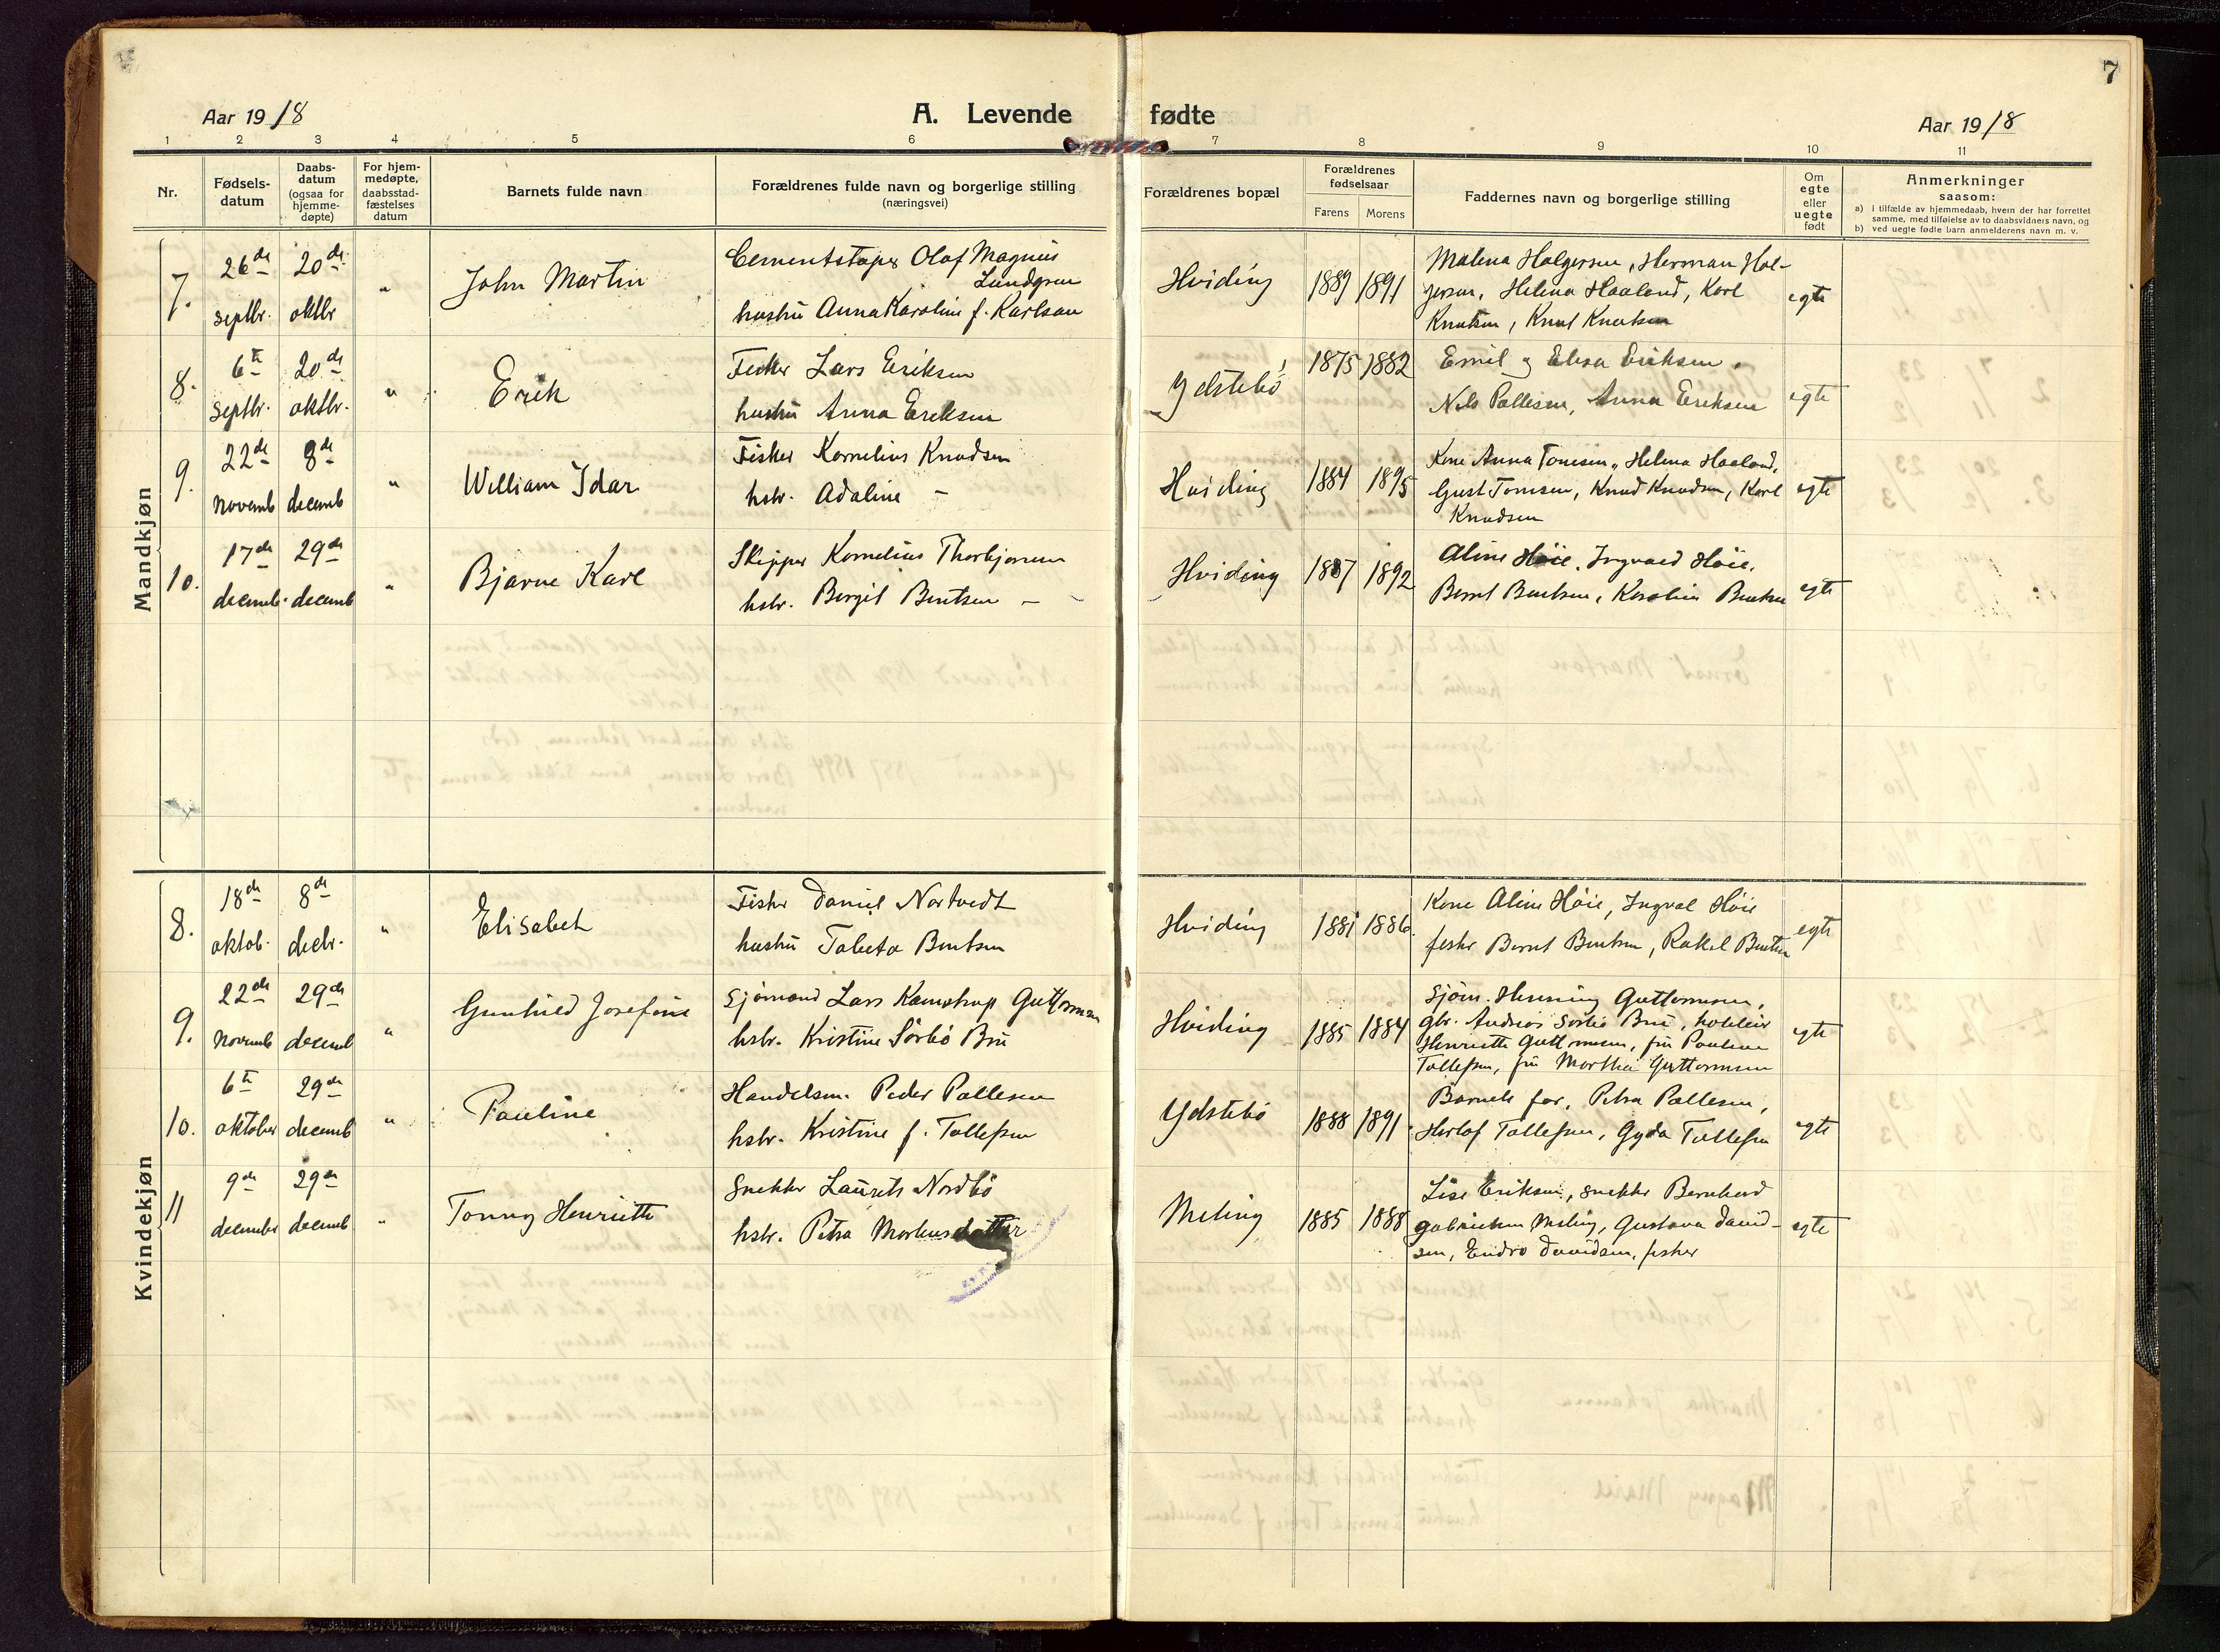 7
Aar 1918
A. Levende fødte
Aar 1918
1 2 3 4 5 6 7 8 9 10 11
Nr.
Fødsels-
datum
Daabs-
datum
(ogsaa for
hjemme-
døpte)
For hjem-
medøpte,
daabsstad-
fæstelses
datum
Barnets fulde navn
Forældrenes fulde navn og borgerlige stilling
(næringsvei)
Forældrenes bopæl
Forældrenes
fødselsaar
Farens Morens
Faddernes navn og borgerlige stilling
Om
egte
eller
uegte
født
Anmerkninger
saasom:
a) i tilfælde av hjemmedaab, hvem der har forrettet
samme, med tilføielse av to daabsvidners navn, og
b) ved uegte fødte barn anmelderens navn m. v.
Mandkjøn
7.
26de
septbr.
20de
oktbr
"
John Martin
Cementstøper Olaf Magnus
Lundgren
hustru Anna Karoline f. Karlson
Hviding
1889 1891
Malena Holgersen, Herman Hol-
gersen, Helena Haaland, Karl
Knutsen, Knut Knutsen
egte
8.
6te
septbr.
20de
oktbr.
"
Erik
Fisker Lars Eriksen
hustru Anna Eriksen
Ydstebö
1875 1882
Emil g Elisa Eriksen,
Nils Pallesen, Anna Eriksen
egte
9.
22de
novemb
8de
decemb
"
William Idar
Fisker Kornelius Knudsen
hstr. Adaline –
Hviding
1884 1895
Kone Anna Tonnesen, Helena Haaland,
Gust Tonnesen, Knud Knudsen, Karl
Knudsen
egte
10.
17de
decemb.
29de
decemb
"
Bjarne Karl
Skipper Kornelius Thorbjørnsen
hstr. Bergit Bentsen –
Hviding
1887 1892
Aline Høie, Ingvald Høie,
Bernt Bentsen, Karoline Bentsen
egte
Kvindekjøn
8.
18de
oktob.
8de
decbr.
"
Elisabet
Fisker Daniel Nortvedt
hustru Tabeta Bentsen
Hviding
1881 1886.
Kone Aline Høie, Ingval Høie
fisker Bernt Bentsen, Rakel Bentsen
egte
9.
22de
novemb
29de
decemb
"
Gunhild Josefine
Sjømand Lars Kamstrup Guttormsen
hstr. Kristine Sörbö Bru
Hviding
1885 1884
Sjøm. Henning Guttormsen,
gbr. Andreas Sörbö Bru,
Henriette Guttormsen, fru Pauline
Tollefsen, fru Martha Guttormsen
egte
10.
6te
oktober
29de
decemb
"
Pauline
Handelsm. Peder Pallesen
hstr. Kristine f. Tollefsen
Ydstebö
1888 1891
Barnets far, Petra Pallesen,
Herlof Tollefsen, Gyda Tollefsen
egte
11
9de
december
29de
decemb
"
Tonny Henriette
Snekker Laurits Nordbö
hstr. Petra Mortensdatter
Meling
1885 1888
Lise Eriksen, snekker Bernhard
Gabrielsen Meling, Gustava David-
sen, Endre Davidsen, fisker
egte